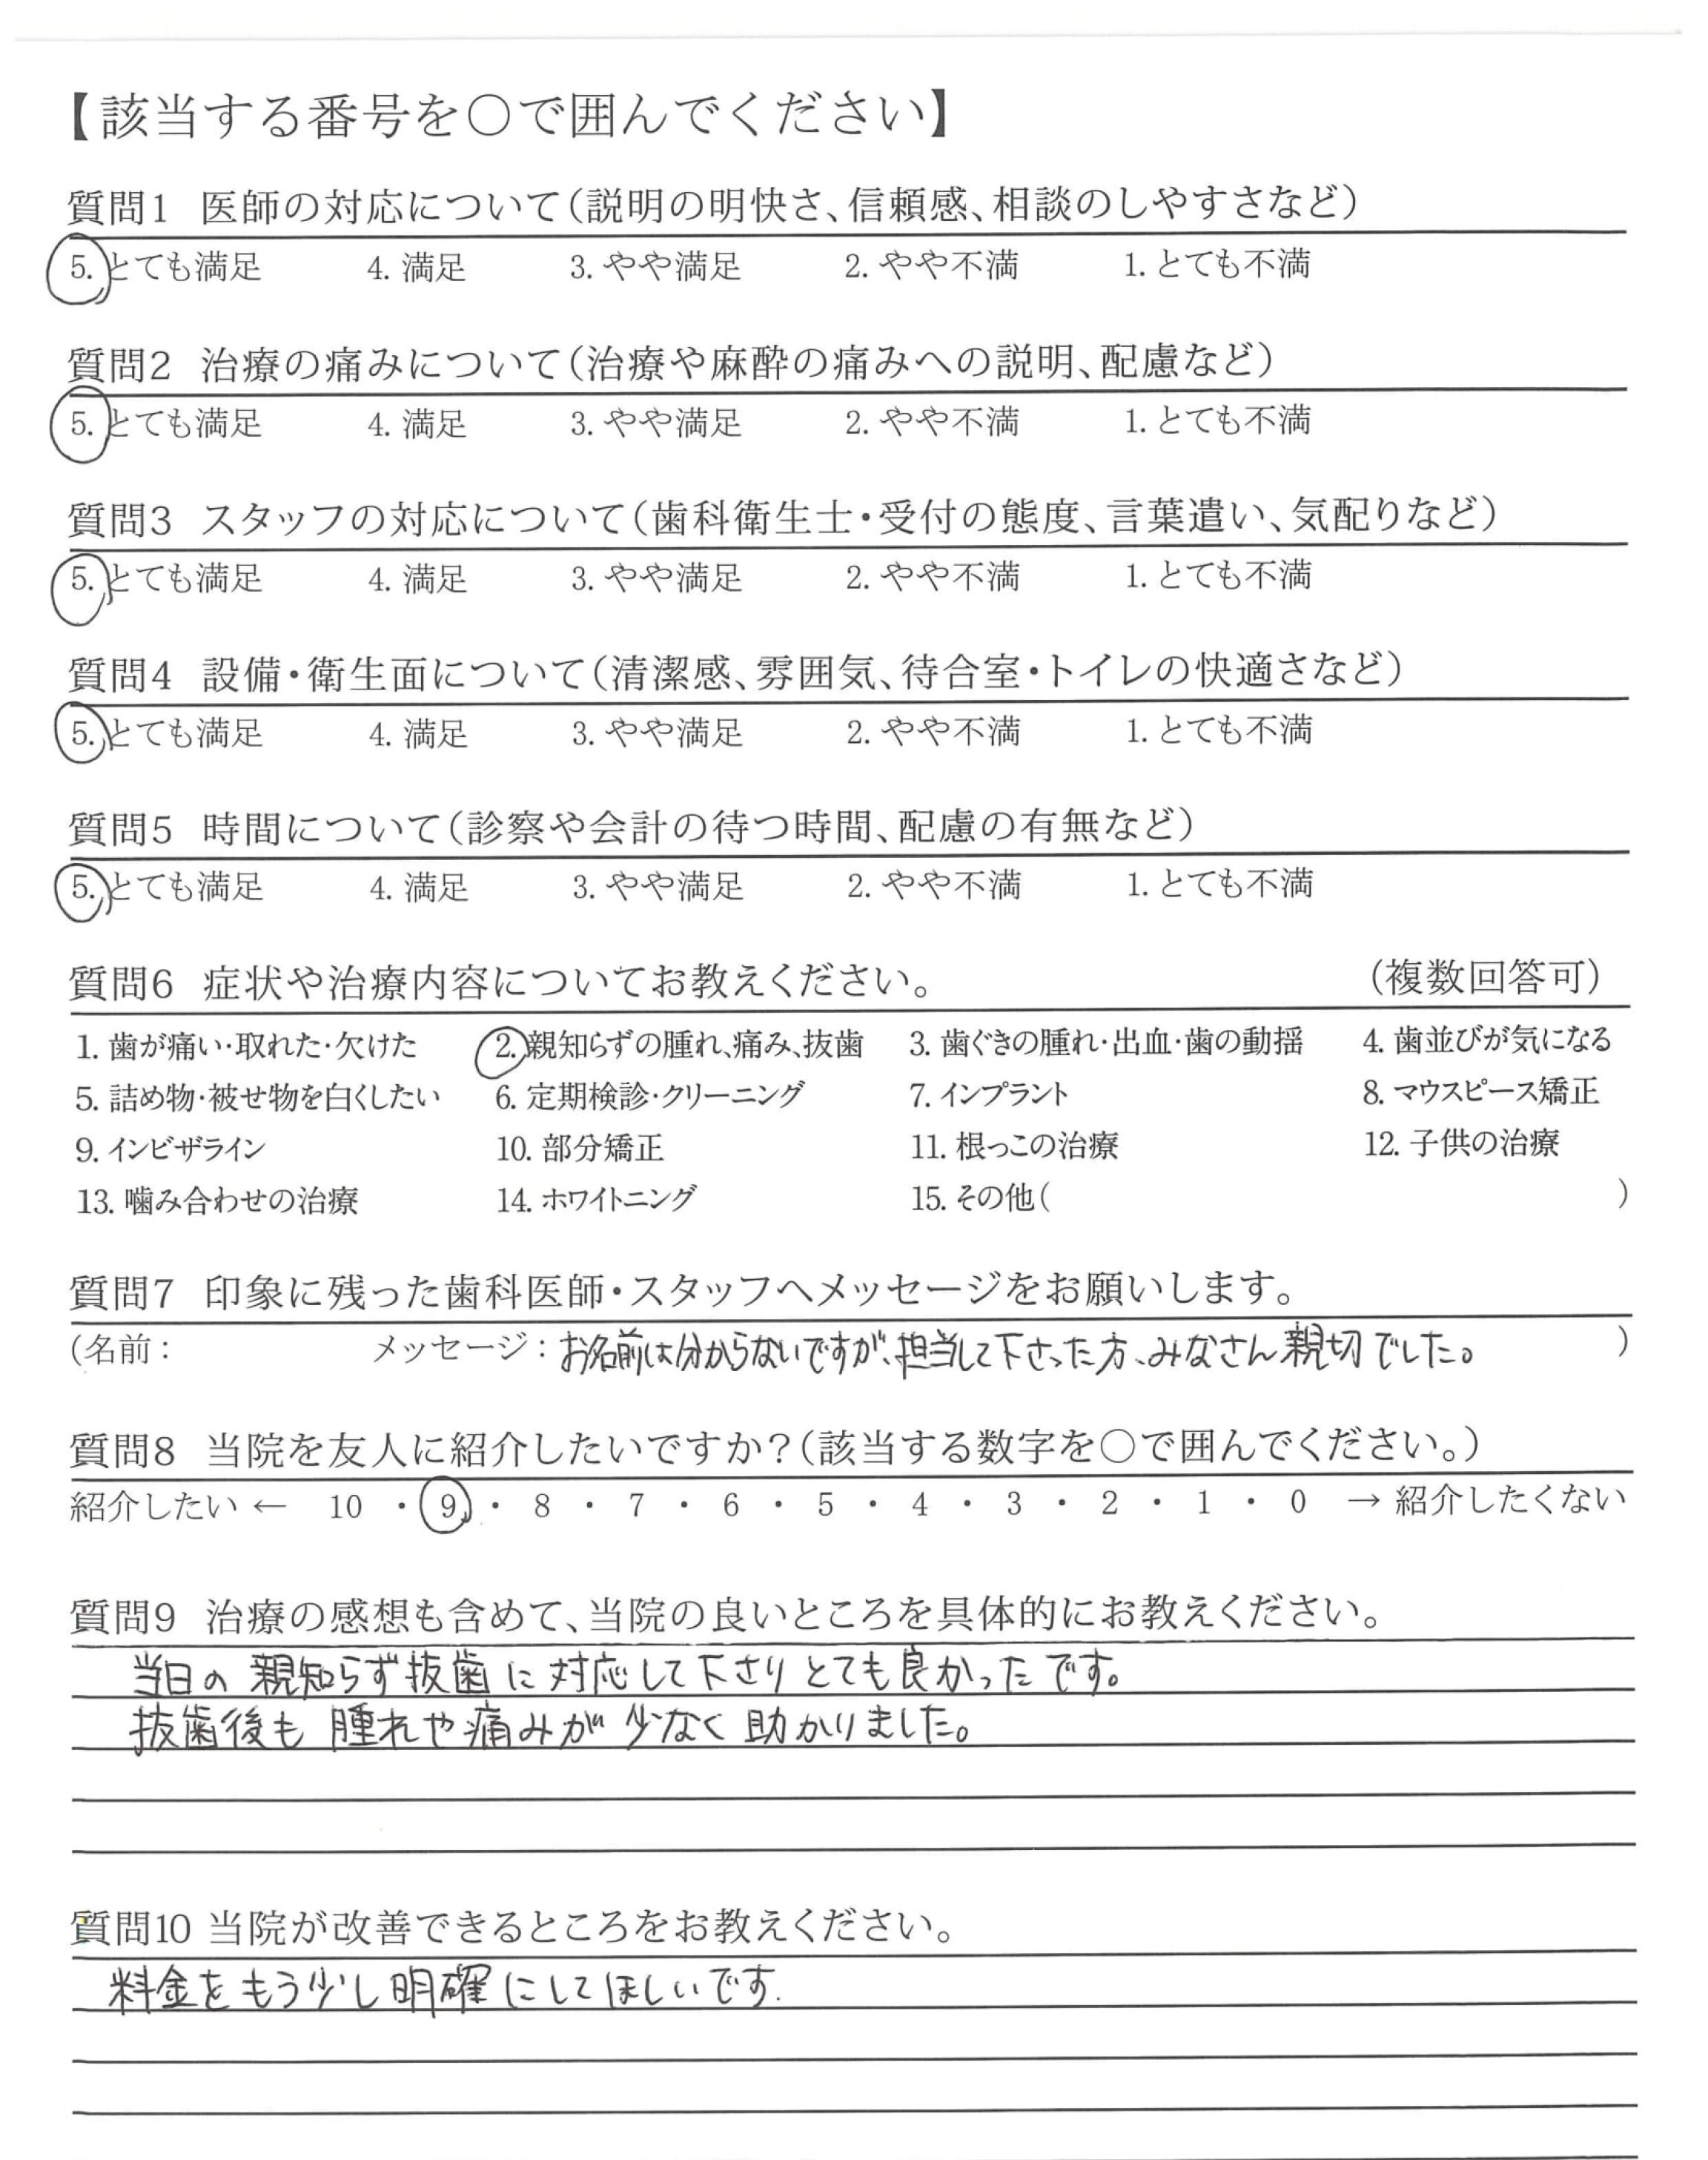 【該当する番号を〇で囲んでください】
質問1 医師の対応について(説明の明快さ、信頼感、相談のしやすさなど)
5. とても満足 4. 満足 3. やや満足 2. やや不満 1. とても不満
質問2 治療の痛みについて(治療や麻酔の痛みへの説明、配慮など)
5. とても満足 4. 満足 3. やや満足 2. やや不満 1. とても不満
質問3 スタッフの対応について(歯科衛生士・受付の態度、言葉遣い、気配りなど)
5. とても満足 4. 満足 3. やや満足 2. やや不満 1. とても不満
質問4 設備・衛生面について(清潔感、雰囲気、待合室・トイレの快適さなど)
5. とても満足 4. 満足 3. やや満足 2. やや不満 1. とても不満
質問5 時間について(診察や会計の待つ時間、配慮の有無など)
5. とても満足 4. 満足 3. やや満足 2. やや不満 1. とても不満
質問6 症状や治療内容についてお教えください。 (複数回答可)
1. 歯が痛い・取れた・欠けた 2. 親知らずの腫れ、痛み、抜歯 3. 歯ぐきの腫れ・出血・歯の動揺 4. 歯並びが気になる
5. 詰め物・被せ物を白くしたい 6. 定期検診・クリーニング 7. インプラント 8. マウスピース矯正
9. インビザライン 10. 部分矯正 11. 根っこの治療 12. 子供の治療
13. 噛み合わせの治療 14. ホワイトニング 15. その他( )
質問7 印象に残った歯科医師・スタッフへメッセージをお願いします。
(名前： メッセージ：お名前は分からないですが、担当して下さった方、みなさん親切でした。 )
質問8 当院を友人に紹介したいですか？(該当する数字を〇で囲んでください。)
紹介したい ← 10 ・ 9 ・ 8 ・ 7 ・ 6 ・ 5 ・ 4 ・ 3 ・ 2 ・ 1 ・ 0 → 紹介したくない
質問9 治療の感想も含めて、当院の良いところを具体的にお教えください。
当日の親知らず抜歯に対応して下さりとても良かったです。
抜歯後も腫れや痛みが少なく助かりました。
質問10 当院が改善できるところをお教えください。
料金をもう少し明確にしてほしいです.